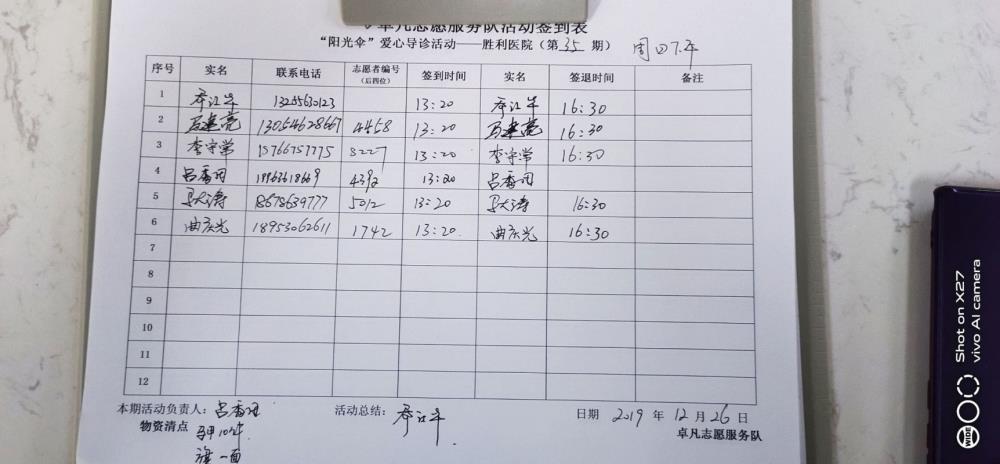 卓凡志愿服务队活动签到表
“阳光伞”爱心导诊活动——胜利医院（第35期） 周四下午
序号 实名 联系电话 志愿者编号（后四位） 签到时间 实名 签退时间 备注
1 13255630123 13:20 16:30
2 13054628667 4458 13:20 16:30
3 李守常 15766757775 8227 13:20 李守常 16:30
4 吕香闵 4392 13:20 吕香闵
5 马大涛 18678639777 5012 13:20 马大涛 16:30
6 曲庆光 18953062611 1742 13:20. 曲庆光 16:30
7
8
9
10
11
12
本期活动负责人：吕香闵 活动总结： 日期 2019 年 12 月 26 日
物资清点 马甲10件 卓凡志愿服务队
旗一面
Shot on X27
vivo AI camera